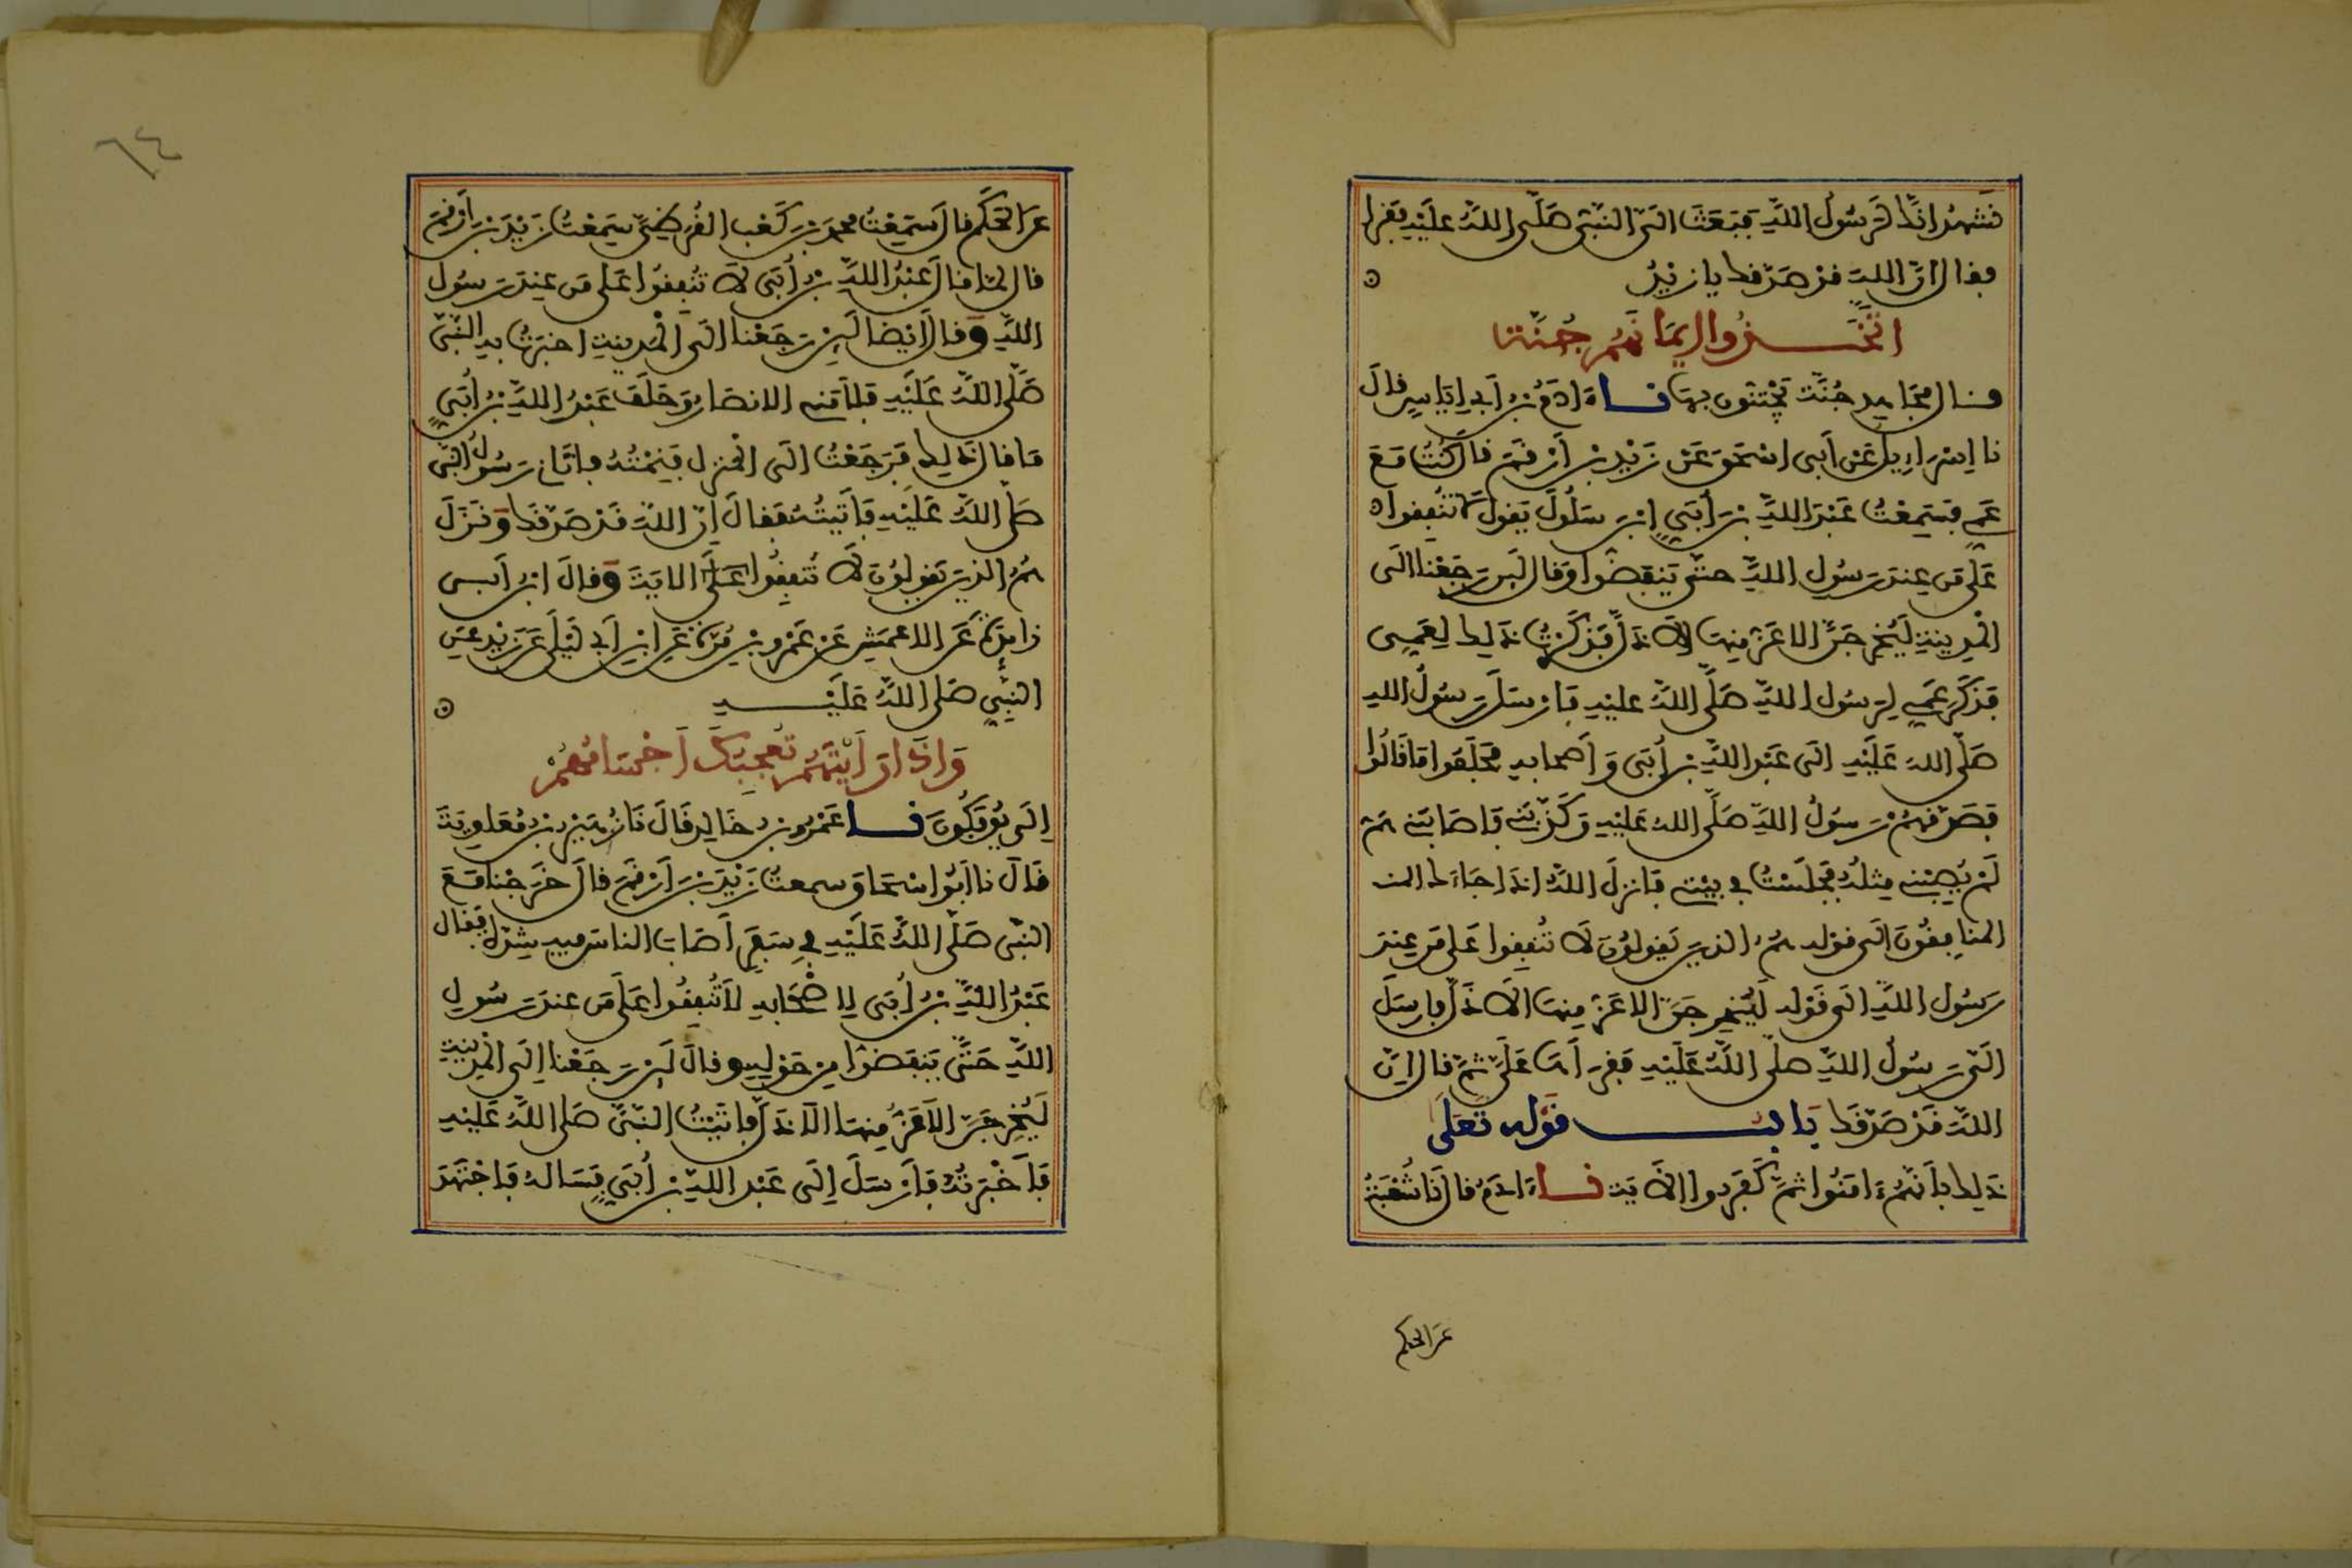 نَشهدُ انكَّ لَرَسُولُ اللَّهِ فَبَعَثَ الىّ النَّبىّ صَلّى اللهُ علَيْهِ فَقرا
فقال انّ اللهَ قدْ صَدّقك يا زيْدُ
اتَّخَذُوا ايمَانَهُمْ جُنَّة
قال مجَاهد جُنَّة يَجْتنّون بهَا نا ءادَمُ بن أبى اِيَاسٍ قالَ
نا اِسْرَاءِيل عَن أبى اسْحَق عَنْ زَيْدِ بن أرْقمَ قال كُنْتُ مَعَ
عَمِّى فسَمِعْتُ عَبْدَ اللهِ بنَ أُبَيٍّ ابْنَ سَلُولَ يَقولُ لا تُنْفِقوا
عَلى مَن عِندَ رَسُولِ اللهِ حتّى يَنفضّوا وَقال لَين رَجَعْنا الَى
المَدِينةِ لَيُخرجَنَّ الاعَزُّ مِنهَا الأذَلَّ فَذكَرْتُ ذَلِك لِعَمِّى
فَذَكَرَ عَمِّى لِرَسُول اللهِ صَلَّى اللهُ عليْهِ فَارْسَلَ رَسُولُ اللهِ
صَلَّى اللهُ عَلَيْهِ الَى عَبْدِ اللهِ بنِ أُبَى وَأصحابه فَحَلَفُوا مَا قَالُوا
فَصَدّقهُمْ رَسُولُ اللهِ صَلَّى اللهُ عَلَيْهِ وَكَذّبَنى فَاصَابَنى هَمّ
لَمْ يُصِبْنى مِثلُهُ فَجَلَسْتُ فى بيْتى فَانزلَ اللهُ اذَا جَاءَك المنـ
المنافِقُونَ الَى قوْله هُمُ الذينَ يَقولوُنَ لَا تُنْفِقوا عَلى مَن عِندَ
رَسُولِ اللهِ الَى قَوْله لَيُخرِجَنَّ الاعَزُّ مِنهَا الأذَلَّ فارسَلَ
الَىّ رَسُولُ اللهِ صلَّى اللهُ عَلَيْهِ فَقرَأهَا عَلَىَّ ثمَّ قال انّ
اللهَ قَدْ صَدّقَكَ بَابُ قَوْله تعَلى
ذَلِك بأنّهُمْ ءامَنُوا ثمَّ كَفَرُوا الأيَة نا ءادَمُ قال نَا شُعْبَةُ
عَن الحكم
٦٤
عَن الحَكَم قال سَمِعْتُ محمد بنَ كَعْب القُرَظِىّ سَمِعْتُ زَيْدَ بْنَ أرْقمَ
قال لمّا قال عَبْدُ اللهِ بنُ أُبَى لَا تُنْفِقُوا عَلى مَن عِندَ رَسُول
اللهِ وقال أيْضا لَين رَجَعْنا الَى المَدينةِ اخبَرْتُ به النَّبىّ
صَلّى اللهُ عَلَيْهِ فلامَنى الانصَارُ وَحَلَفَ عَبْدُ اللهِ بنُ أُبَيٍّ
مَا قال ذَلِكَ فَرَجَعْتُ الَى المنزل فَنِمْتُ فاتَانى رَسُولُ النبى
صَلَّى اللهُ عَلَيْهِ فَأتَيْتُهُ فقالَ اِنّ اللهَ قَدْ صَدّقَك وَنَزَلَ
هُمُ الذينَ يَقولوُنَ لَا تُنفِقُوا عَلَى الايَةَ وقالَ ابنُ أبى
زايدَة عَن الاعمَشِ عَن عَمْرو بْنِ مُرّة عَن ابنِ أبى لَيْلَى عَن زَيْدٍ عَن
النَّبِيّ صَلى اللهُ عَلَيْه
وَاذَا رَأيْتَهُمْ تُعجِبُكَ أجْسَامُهُمْ
اِلَى يُوفَكُونَ نا عَمْرُو بن خَالِد قَالَ نَا زُهَيْرُ بنُ مُعَاوِيَةَ
قَالَ نا أبُوا اسْحَاقَ سمعتُ زَيْدَ بْنَ أرْقمَ قالَ خَرَجْنا مَعَ
النبّى صَلَّى اللهُ عَلَيْهِ فى سَفَرٍ أصَابَ الناسَ فيه شِدّة فَقال
عَبْدُ اللهِ بنُ أُبَى لِاصْحَابِه لَا تُنفِقُوا عَلَى مَن عِندَ رَسُولِ
اللهِ حَتَّى يَنفَضّوا مِن حَوْلِهِ وقالَ لَين رَجَعْنا إلَى المَدينَةِ
لَيُخرِجَنَّ الأعَزُّ مِنهَا الأذَلَّ فاتَيْتُ النَّبىَّ صَلى اللهُ عَلَيْهِ
فَأخْبَرْتُهُ فَأرْسَلَ إلَى عَبْدِ اللهِ بْنِ أُبَيٍّ فَسَالهُ فَاجْتَهَدَ